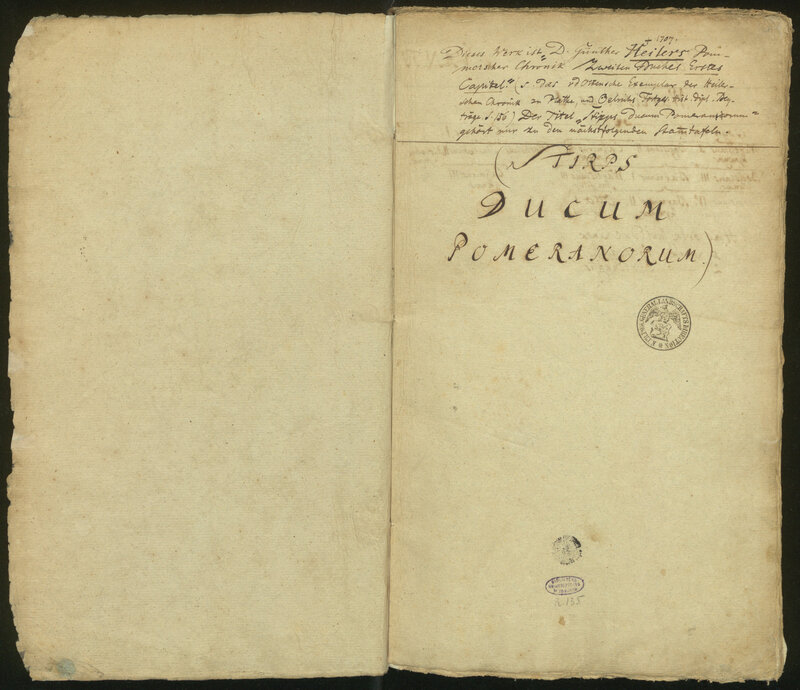 † 1707.
Dieses Werk ist D. Günther Heilers Pom̄
merscher Chronik Zweiten Buches Erstes
Capitel" (s. das Exemplar der Heiler-
schen Chronik zu Plathe, und Oelrichs hist. dipl. Bey-
träge S. 150) Der Titel "Stirps Ducum Pomeranorum"
gehört nur zu den nächstfolgenden Stam̄tafeln.
(STIRPS
DUCUM
POMERANORUM)
R. 135